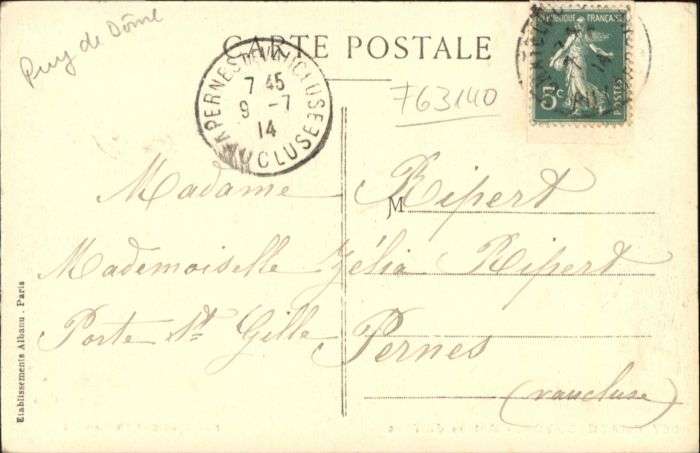 Puy de Dôme
CARTE POSTALE
PERNES DE VAUCLUSE
7 45
9 -7
14
VAUCLUSE
763140
REPUBLIQUE FRANÇAISE
5c
POSTES
7
14
M
Madame Ripert
Mademoiselle Zélia Ripert
Porte St Gille Pernes
(vaucluse)
Etablissements Albanu, Paris